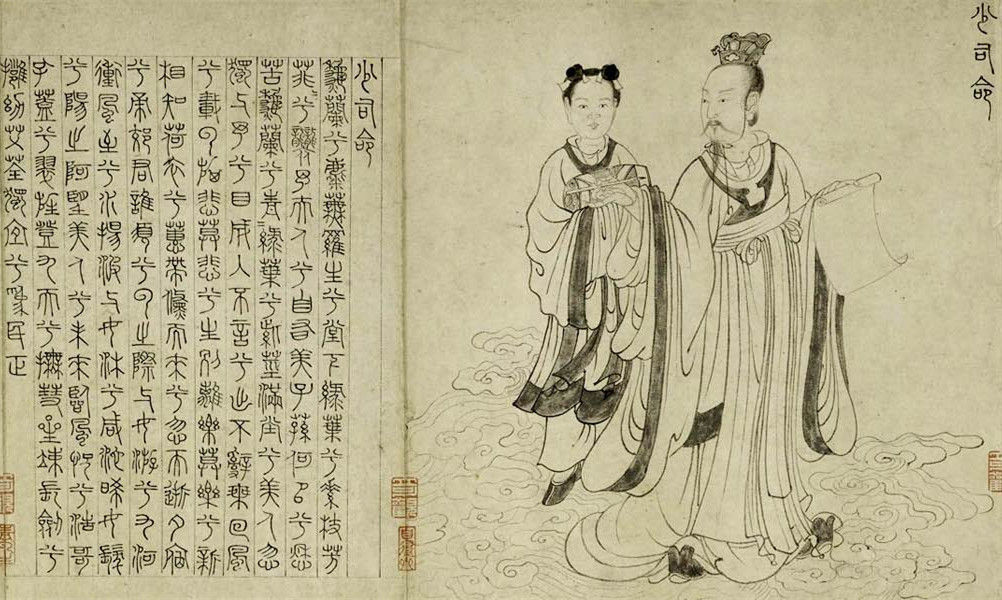 少司命
少司命
秋蘭兮麋蕪羅生兮堂下綠葉兮素枝芳
菲兮襲予夫人兮自有美子蓀何以兮愁
苦秋蘭兮青綠葉兮紫莖滿堂兮美人忽
獨與予兮目成入不言兮出不辭乘回風
兮載雲旗悲莫悲兮生別離樂莫樂兮新
相知荷衣兮蕙帶儵而來兮忽而逝夕宿
兮帝郊君誰須兮雲之際與女游兮九河
衝風至兮水揚波與女沐兮咸池晞女髮
兮陽之阿望美人兮未來臨風怳兮浩哥
孔蓋兮翠旌登九天兮撫彗星竦長劍兮
擁幼艾荃獨宜兮為民正